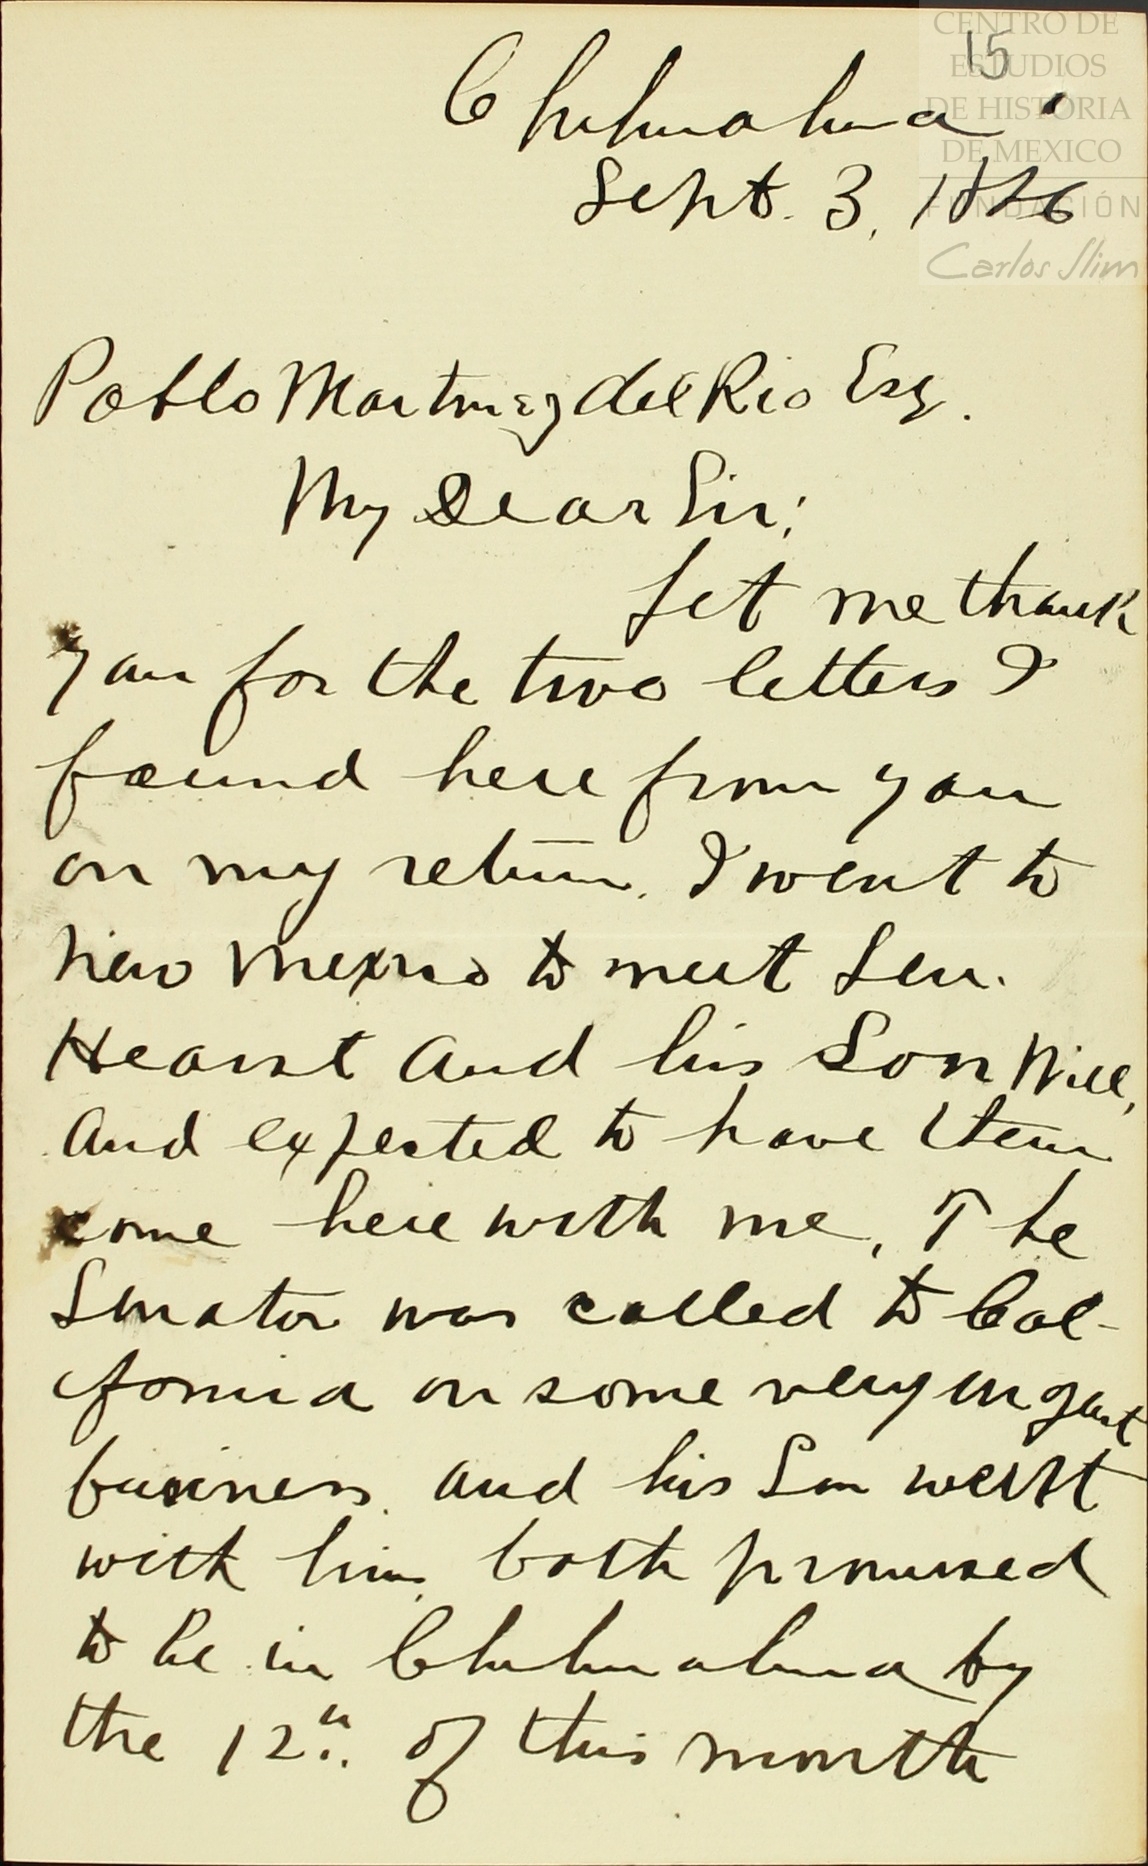 CENTRO DE
ESTUDIOS
DE HISTORIA
DE MEXICO
FUNDACIÓN
Carlos Slim
15
Chihuahua.
Sept. 3, 1886
Pablo Martinez del Rio Esq.
My Dear Sir;
Let me thank
you for the two letters I
found here from you
on my return. I went to
New Mexico to meet Sen.
Hearst and his Son Will,
and expected to have them
come here with me, The
Senator was called to Cal-
ifornia on some very urgent
business and his Son went
with him, both promised
to be in Chihuahua by
the 12th. of this month